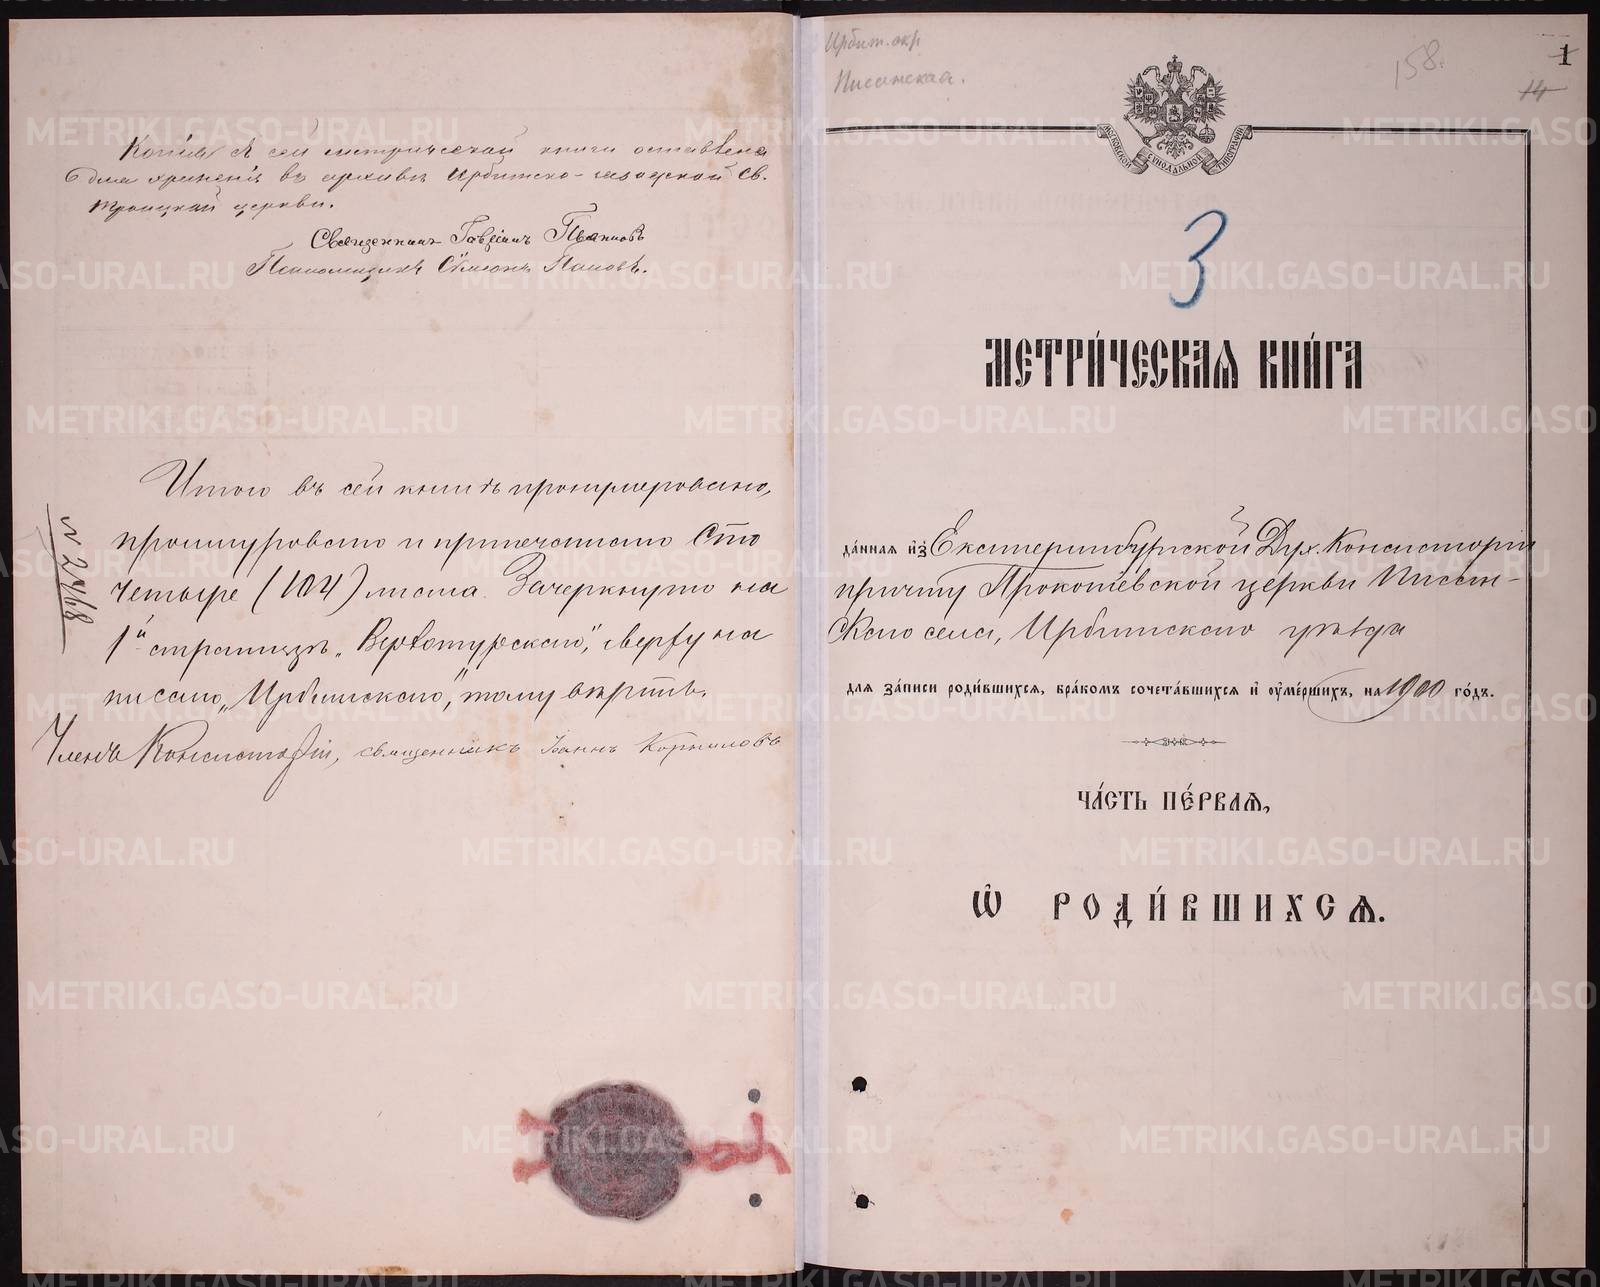 Копія съ сей метрической книги оставлена
для храненія въ архивѣ Ирбитско-заводской Св.
Троицкой церкви.
Священникъ Гавріилъ Ивановъ
Псаломщикъ Симеонъ Поповъ.
Итого въ сей книгѣ пронумеровано,
прошнуровано и припечатано Сто
четыре (104) листа. Зачеркнуто на
1й страницѣ „Верхотурскаго", сверху на
писано „Ирбитскаго", тому вѣрить.
Членъ Консисторіи, священникъ Іоаннъ Корниловъ
№ 2768
Ирбит. окр
Писанская.
158.
1
14
МОСКОВСКОЙ СУНОДАЛЬНОЙ ТИПОГРАФІИ
3
МЕТРИ́ЧЕСКАѦ КНИ́ГА
да́нная из̾ Екатеринбургской Дух. Консисторіи
причту Прокопьевской церкви Писан-
скаго села, Ирбитскаго уѣзда
для за́писи роди́вшихсѧ, бра́комъ сочета́вшихсѧ и҆ оу҆ме́ршихъ, на 1900 го́дъ.
ЧА́СТЬ ПЕ́РВАѦ,
Ѽ РОДИ́ВШИХСѦ.
METRIKI.GASO-URAL.RU